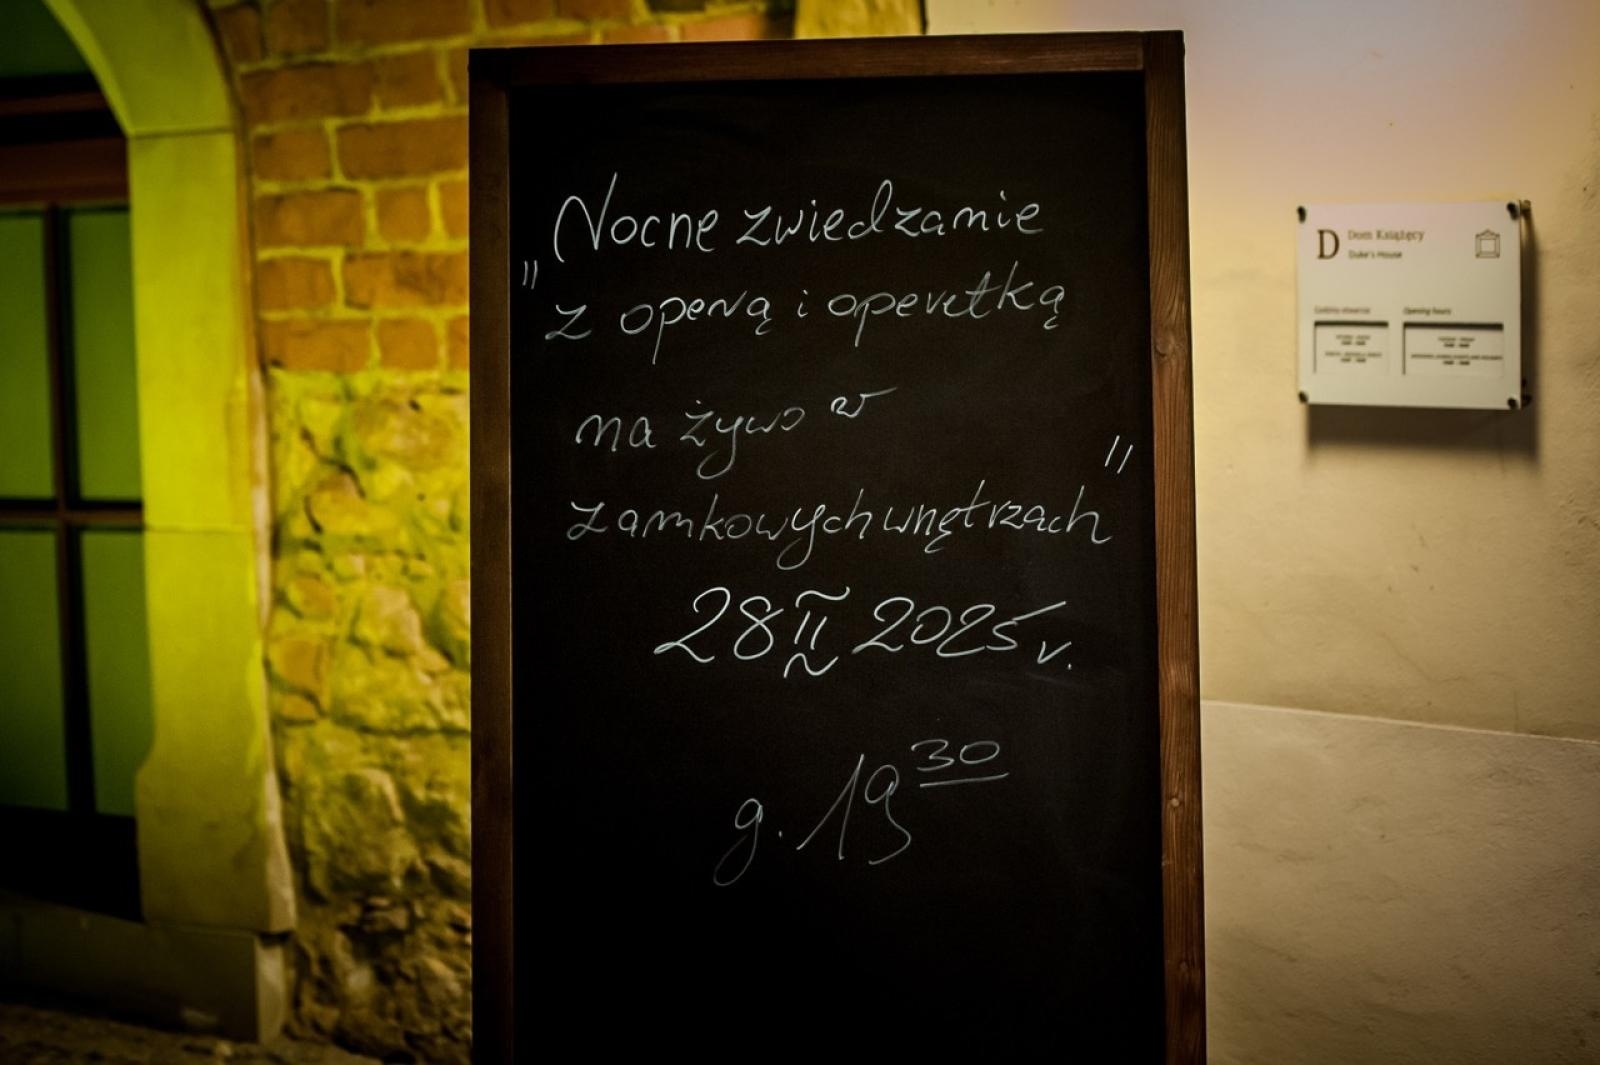 „Nocne zwiedzanie
z operą i operetką
na żywo w
zamkowych wnętrzach"
28 II 2025 r.
g. 19 30
D Dom Książęcy
Duke's House
Godziny otwarcia Opening hours